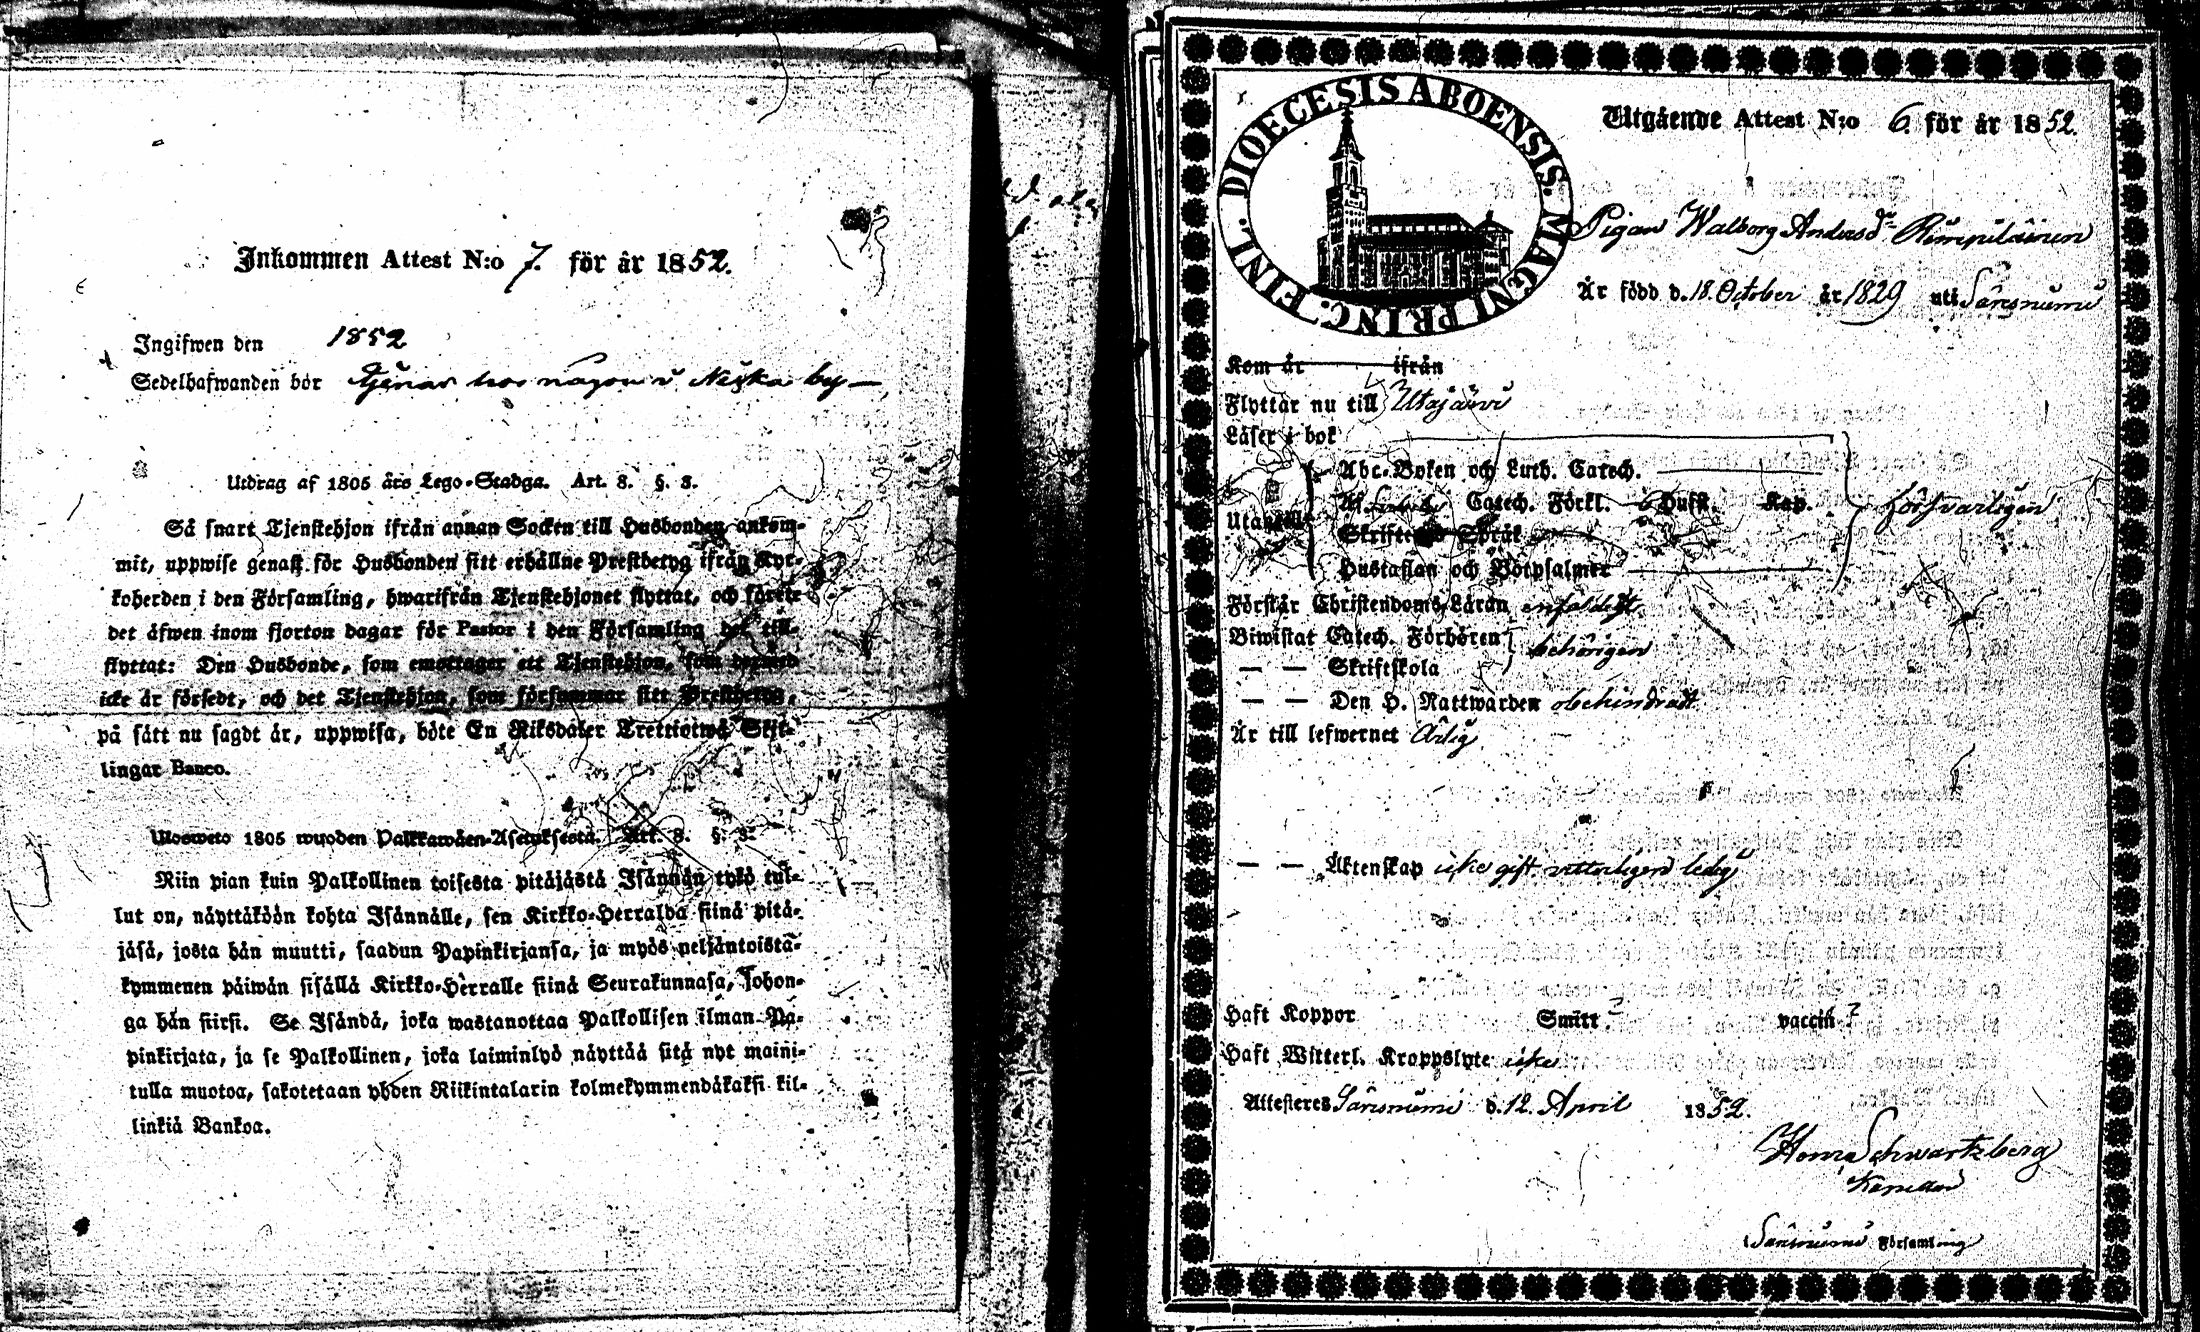 Inkommen Attest N:o 7. för år 1852.
Ingifwen den 1852
Sedelhafwanden bör tjena hos någon i Niska by
Utdrag af 1805 års Lego-Stadga. Art. 8. §. 8.
Så snart Tjenstehjon ifrån annan Socken till Husbonden ankom-
mit, uppwise genast för Husbonden sitt erhållne Prestbetyg ifrån Kyr-
koherden i den Församling, hwarifrån Tjenstehjonet flyttat, och förete
det äfwen inom fjorton dagar för Pastor i den Församling det till-
flyttat: Den Husbonde, som emottager ett Tjenstehjon, som dermed
icke är försedt, och det Tjenstehjon, som försummar sitt Prestbetyg,
på sätt nu sagdt är, uppwisa, böte En Riksdaler Trettiotwå Skil-
lingar Banco.
Ulosweto 1805 wuoden Palkkawäen-Asetuksesta. Art. 8. §. 8.
Niin pian kuin Palkollinen toisesta pitäjästä Isännän tykö tul-
lut on, näyttäköön kohta Isännälle, sen Kirkko-Herralda siinä pitä-
jäsä, josta hän muutti, saadun Papinkirjansa, ja myös neljäntoista-
kymmenen päiwän sisällä Kirkko-Herralle siinä Seurakunnasa, johon-
ga hän siirsi. Se Isändä, joka wastanottaa Palkollisen ilman Pa-
pinkirjata, ja se Palkollinen, joka laiminlyö näyttää sitä nyt maini-
tulla muotoa, sakotetaan yhden Riikintalarin kolmekymmendäkaksi kil-
linkiä Bankoa.
DIOECESIS ABOENSIS. MAGNI PRINC. FINL.
Utgående Attest N:o 6. för år 1852.
Pigan Walborg Andersd:r
Är född d. 18. October år 1829 uti
Kom år ifrån
Flyttar nu till Utajärvi
Läser i bok
Abc-Boken och Luth. Catech.
Utantill Catech. Förkl. 6 Hufst. Kap. försvarligen
Skriftenes Språk
Hustaflan och Botpsalmer
Förstår Christendoms Läran enfaldigt
Biwistat Catech. Förhören behörigen
— — Skriftskola
— — Den H. Nattwarden obehindradt
Är till lefwernet ärlig
— — Äktenskap icke gift vetterligen ledig
Haft Koppor Smitt. ? vaccin ?
Haft Witterl. Kroppslyte icke
Attesteras d. 12. April 1852.
Schwartzberg
Församling